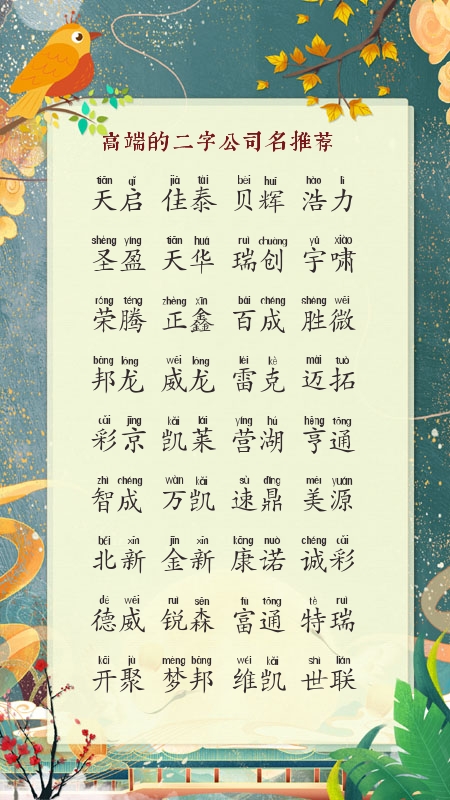 高端的二字公司名推荐
tiān qǐ jiā tài bèi huī hào lì
天启 佳泰 贝辉 浩力
shèng yíng tiān huá ruì chuàng yǔ xiào
圣盈 天华 瑞创 宇啸
róng téng zhèng xīn bǎi chéng shèng wēi
荣腾 正鑫 百成 胜微
bāng lóng wēi lóng léi kè mài tuò
邦龙 威龙 雷克 迈拓
cǎi jīng kǎi lái yíng hú hēng tōng
彩京 凯莱 营湖 亨通
zhì chéng wàn kǎi sù dǐng měi yuán
智成 万凯 速鼎 美源
běi xīn jīn xīn kāng nuò chéng cǎi
北新 金新 康诺 诚彩
dé wēi ruì sēn fù tōng tè ruì
德威 锐森 富通 特瑞
kāi jù mèng bāng wéi kǎi shì lián
开聚 梦邦 维凯 世联